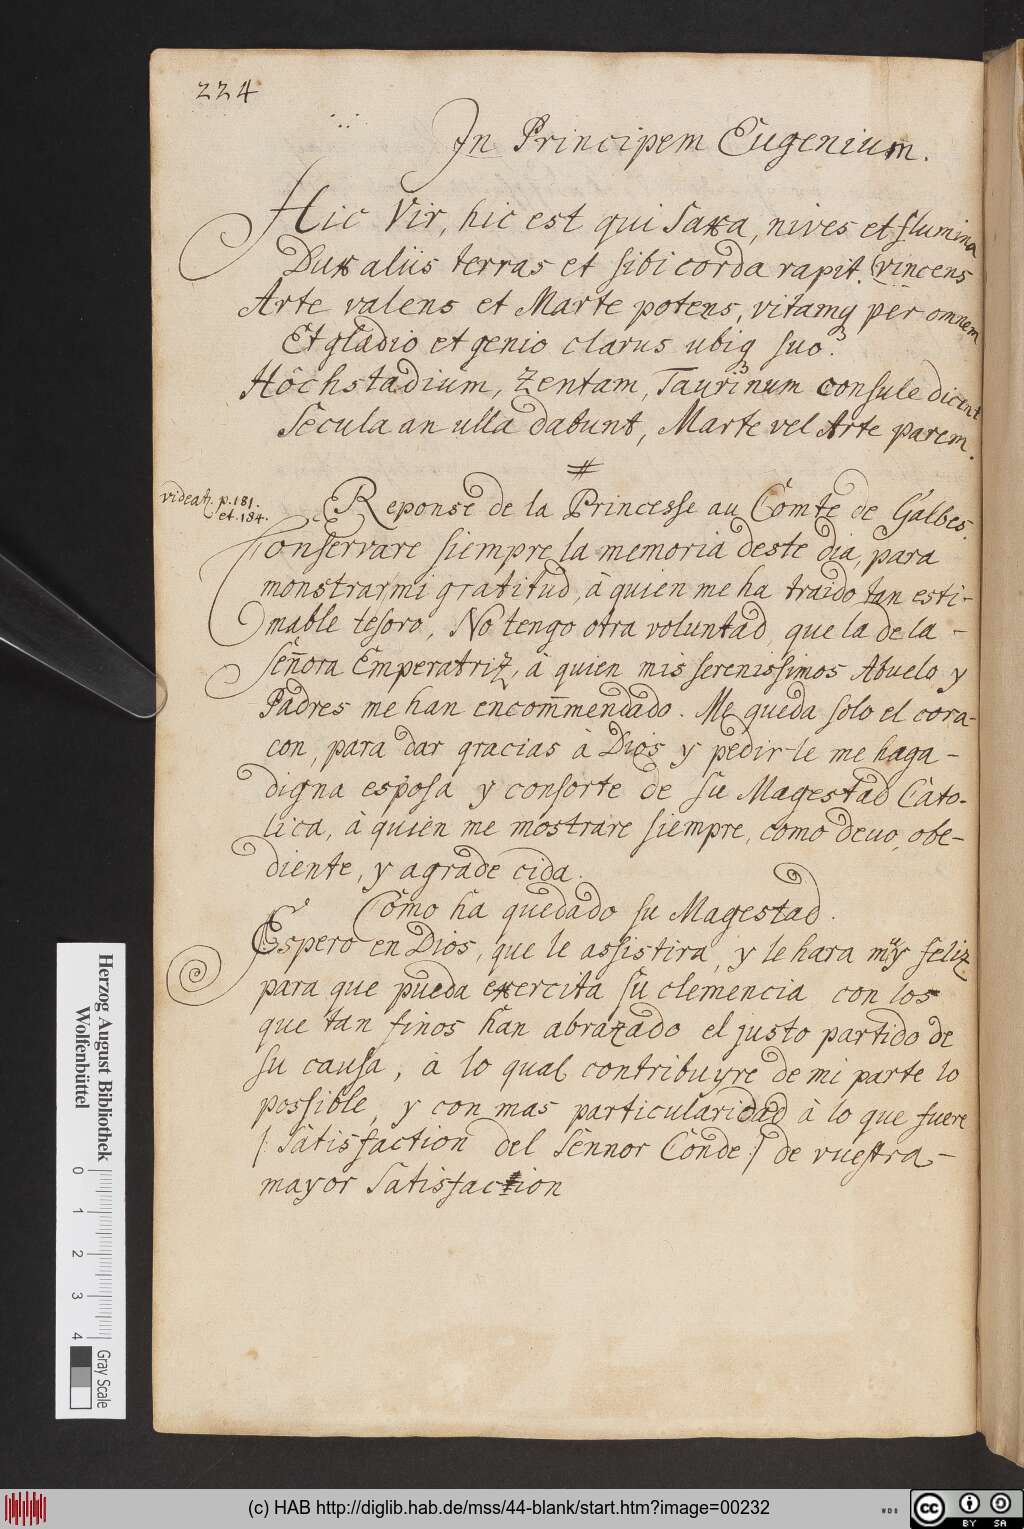 224
In Principem Eugenium.
Hic Vir, hic est qui Saxa, nives et flumina
vincens
Dux aliis terras et sibi corda rapit.
Arte valens et Marte potens, vitamq3 per omnem
Et gladio et genio clarus ubiq3 suo.
Hôchstadium, Zentam, Taurinum consule dicent
Secula an ulla dabunt, Marte vel Arte parem.
#
videat. p. 181.
et. 184.
Reponse de la Princesse au Comte de Galbes.
Conservare siempre la memoria deste dia, para
monstrarmi gratitud, à quien me ha traido tan esti-
mable tesoro, No tengo otra voluntad que la de la -
Señora Emperatriz, à quien mis serenissimos Abuelo y
Padres me han encom̄mendado. Me queda solo el cora-
con, para dar gracias à Dios y pedir le me haga -
digna esposa y consorte de su Magestad Cato-
lica, à quien me mostrare siempre, como devo, obe-
diente, y agrade cida.
Como ha quedado su Magestad.
Espero en Dios, que le assistira, y le hara muy feliz
para que pueda exercita su clemencia con los
que tan finos han abrazado el justo partido de
su causa, à lo qual contribuyre de mi parte lo
possible, y con mas particularidad à lo que fuere
/: Satisfaction del Sennor Conde :/ de vuestra -
mayor Satisfaction
Herzog August Bibliothek
Wolfenbüttel
0 1 2 3 4
Gray Scale
(c) HAB http://diglib.hab.de/mss/44-blank/start.htm?image=00232
WDB
cc BY SA